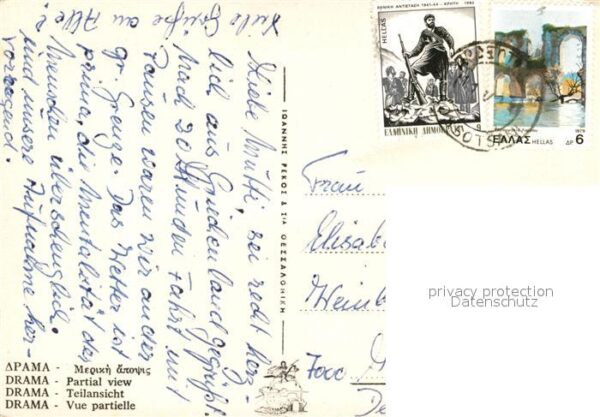 Liebe Mutti, sei recht herz-
lich aus Griechenland gegrüßt.
Nach 20 Stunden Fahrt mit
Pausen waren wir an der
gr. Grenze. Das Wetter ist
prima, die Mentalität der
Menschen überschwenglich
und unsere Aufnahme her-
vorragend.
Viele Grüße an Alle
ΙΩΑΝΝΗΣ ΡΕΚΟΣ & ΣΙΑ ΘΕΣΣΑΛΟΝΙΚΗ
ΕΘΝΙΚΗ ΑΝΤΙΣΤΑΣΗ 1941-44 - ΚΡΗΤΗ 1982
HELLAS
ΕΛΛΗΝΙΚΗ ΔΗΜΟΚΡ
ΕΛΛΑΣ HELLAS
1979
ΔΡ 6
Frau
Elisab
Weinb
privacy protection
Datenschutz
ΔΡΑΜΑ - Μερική ἄποψις
DRAMA - Partial view
DRAMA - Teilansicht
DRAMA - Vue partielle